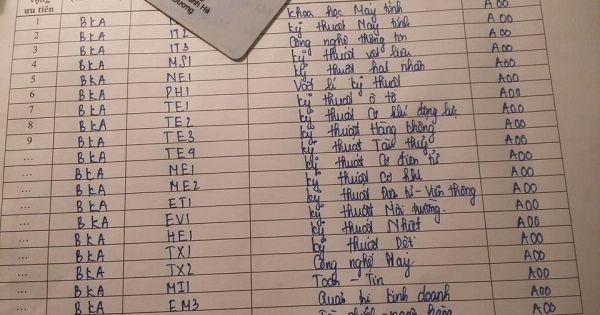 ưu tiên
1 BKA Khoa học Máy tính A00
2 BKA IT2 kỹ thuật Máy tính A00
3 BKA IT3 Công nghệ thông tin A00
4 BKA MS1 kỹ thuật vật liệu A00
5 BKA NE1 kỹ thuật hạt nhân A00
6 BKA PH1 Vật lí kỹ thuật A00
7 BKA TE1 kỹ thuật ô tô A00
8 BKA TE2 kỹ thuật Cơ khí động lực A00
9 BKA TE3 kỹ thuật Hàng không A00
... BKA TE4 kỹ thuật Tàu thuỷ A00
... BKA ME1 kỹ thuật Cơ điện tử A00
... BKA ME2 kỹ thuật Cơ khí A00
... BKA ET1 kỹ thuật Điện tử - Viễn thông A00
... BKA EV1 kỹ thuật Môi trường. A00
... BKA HE1 kỹ thuật Nhiệt A00
... BKA TX1 kỹ thuật Dệt A00
... BKA TX2 Công nghệ May A00
... BKA MI1 Toán - Tin A00
... BKA EM3 Quản trị kinh doanh A00